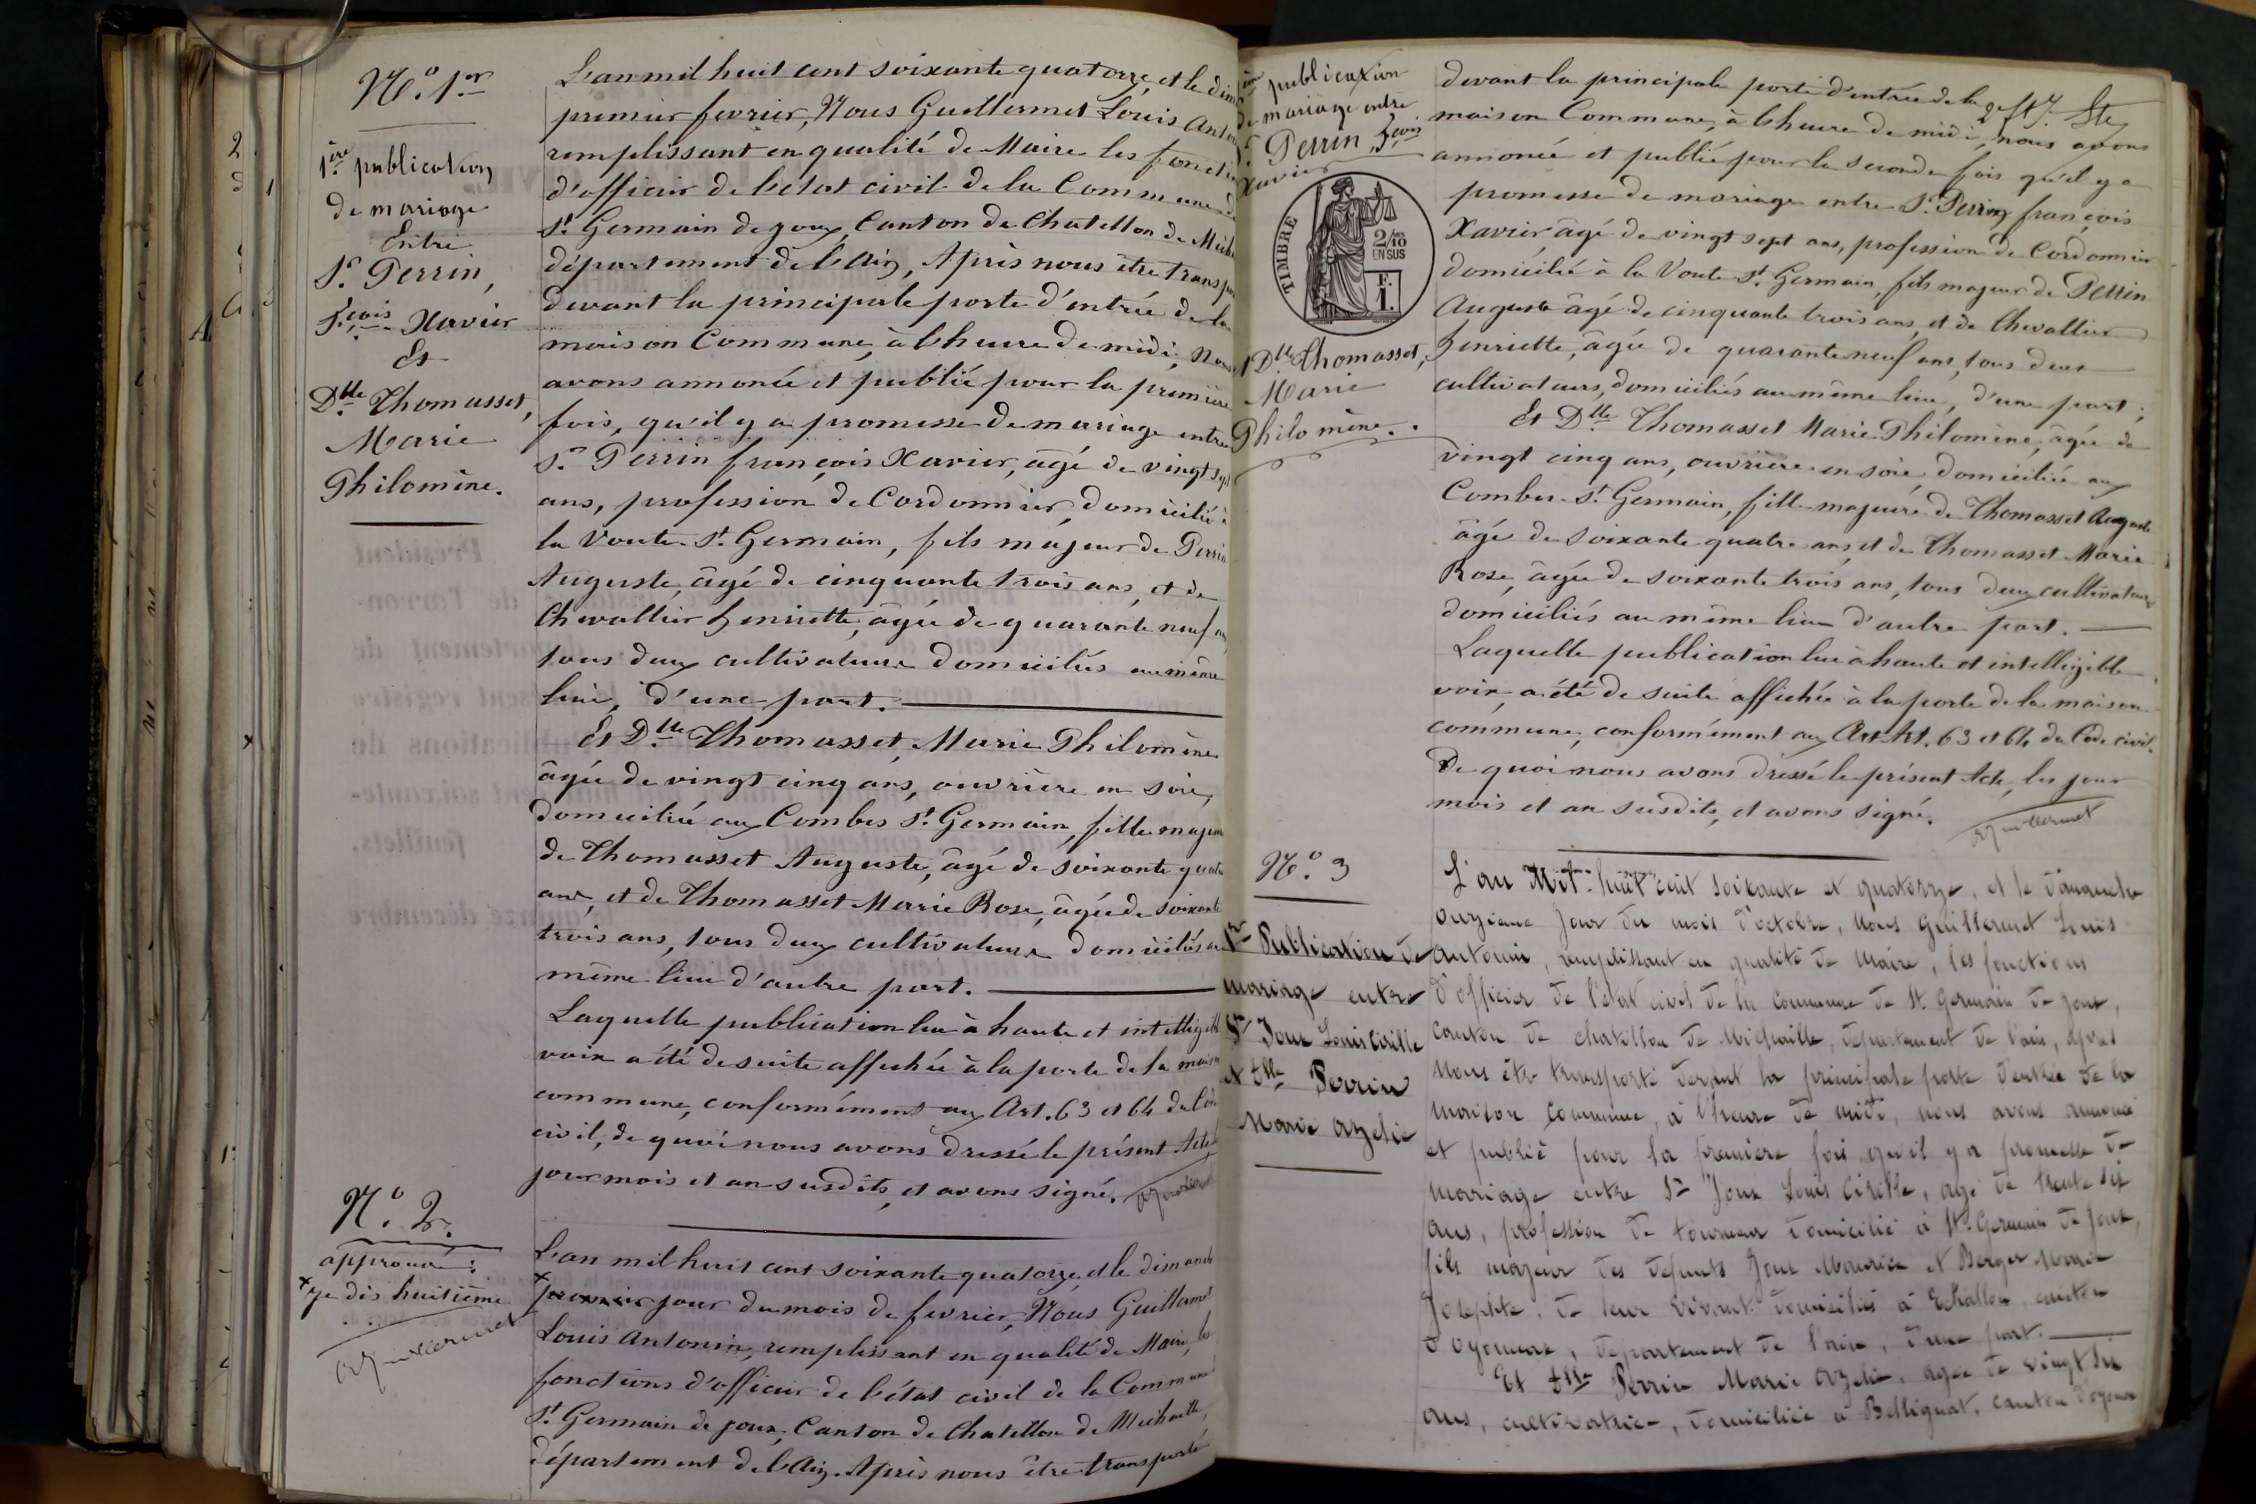 N.º 1.er
1.ère publication
de mariage
Entre
S.r Perrin,
F.cois Xavier
Et
D.lle Thomasset,
Marie
Philomène.
L'an mil huit cent soixante quatorze, et le
premier fevrier, Nous Guillermet Louis
remplissant en qualité de Maire les
d'officier de l'état civil de la Commune
S.t Germain de joux, Canton de Chatillon de
département de l'Ain, Après nous être
devant la principale porte d'entrée de la
maison Commune, à l'heure de midi, Nous
avons annoncé et publié pour la première
fois, qu'il y a promesse de mariage entre
S.r Perrin françois Xavier, âgé de vingt sept
ans, profession de Cordonnier, domicilié à
la Voute S.t Germain, fils majeur de Perrin
Auguste, âgé de cinquante trois ans, et de
Chevallier henriette, âgée de quarante neuf
tous deux cultivateurs domiciliés au même
lieu, d'une part.
Et D.lle Thomasset, Marie Philomène
âgée de vingt cinq ans, ouvrière en soie,
domiciliée aux Combes S.t Germain, fille
de Thomasset Auguste, âgé de soixante
ans, et de Thomasset Marie Rose, âgée de soixante
trois ans, tous deux cultivateurs domiciliés au
même lieu d'autre part.
Laquelle publication lue à haute et
voix a été de suite affichée à la porte de la maison
commune, conformément aux Art. 63 et 64 du
civil, de quoi nous avons dressé le présent Acte,
jour mois et an susdits, et avons signé.
N.º 2.
approuvé :
x dix huitième
Guillermet
L'an mil huit cent soixante quatorze, et le dimanche
x premier jour du mois de fevrier, Nous Guillermet
Louis Antonin, remplissant en qualité de Maire, les
fonctions d'officier de l'état civil de la Commune
S.t Germain de joux, Canton de Chatillon de Michaille,
département de l'Ain, Après nous être transporté
publication
de mariage entre
Perrin, F.cois
Xavier
TIMBRE
2/10
EN SUS
F.
1.
D.lle Thomasset,
Marie
Philomène.
devant la principale porte d'entrée de la
maison Commune, à l'heure de midi, nous avons
annoncé et publié pour la seconde fois qu'il y a
promesse de mariage entre S.r Perrin françois
Xavier, âgé de vingt sept ans, profession de Cordonnier
domicilié à la Voute S.t Germain, fils majeur de Perrin
Auguste âgé de cinquante trois ans, et de Chevallier
henriette, âgée de quarante neuf ans, tous deux
cultivateurs, domiciliés au même lieu, d'une part ;
Et D.lle Thomasset Marie Philomène, âgée de
vingt cinq ans, ouvrière en soie, domiciliée aux
Combes S.t Germain, fille majeure de Thomasset Auguste
âgé de soixante quatre ans, et de Thomasset Marie
Rose, âgée de soixante trois ans, tous deux cultivateurs
domiciliés au même lieu d'autre part.
Laquelle publication lue à haute et intelligible
voix, a été de suite affichée à la porte de la maison
commune, conformément aux Art. 63 et 64 du Code civil.
De quoi nous avons dressé le présent Acte, les jour
mois et an susdits, et avons signé.
Guillermet
N.º 3
1re Publication de
mariage entre
Sr Joux Louis Cirille
et Dlle Perrin
Marie Azelie
L'an Mil huit cent soixante et quatorze, et le dimanche
onzième jour du mois d'octobre, Nous Guillermet Louis
Antonin, remplissant en qualité de Maire, les fonctions
d'officier de l'état civil de la Commune de St. Germain de joux,
canton de chatillon de Michaille, département de l'ain, après
Nous être transporté devant la principale porte d'entrée de la
maison commune, à l'heure de midi, nous avons annoncé
et publié pour la première fois qu'il y a promesse de
mariage entre Sr Joux Louis Cirille, agé de trente six
ans, profession de tourneur domicilié à St. Germain de joux,
fils majeur des defunts Joux Maurice et Berger Marie
Josephte, de leur vivant domiciliés à Echallon, canton
d'oyonnax, département de l'ain, d'une part.
Et Dlle Perrin Marie Azelie, agée de vingt six
ans, cultivatrice, domiciliée à Bellignat, canton d'oyonnax